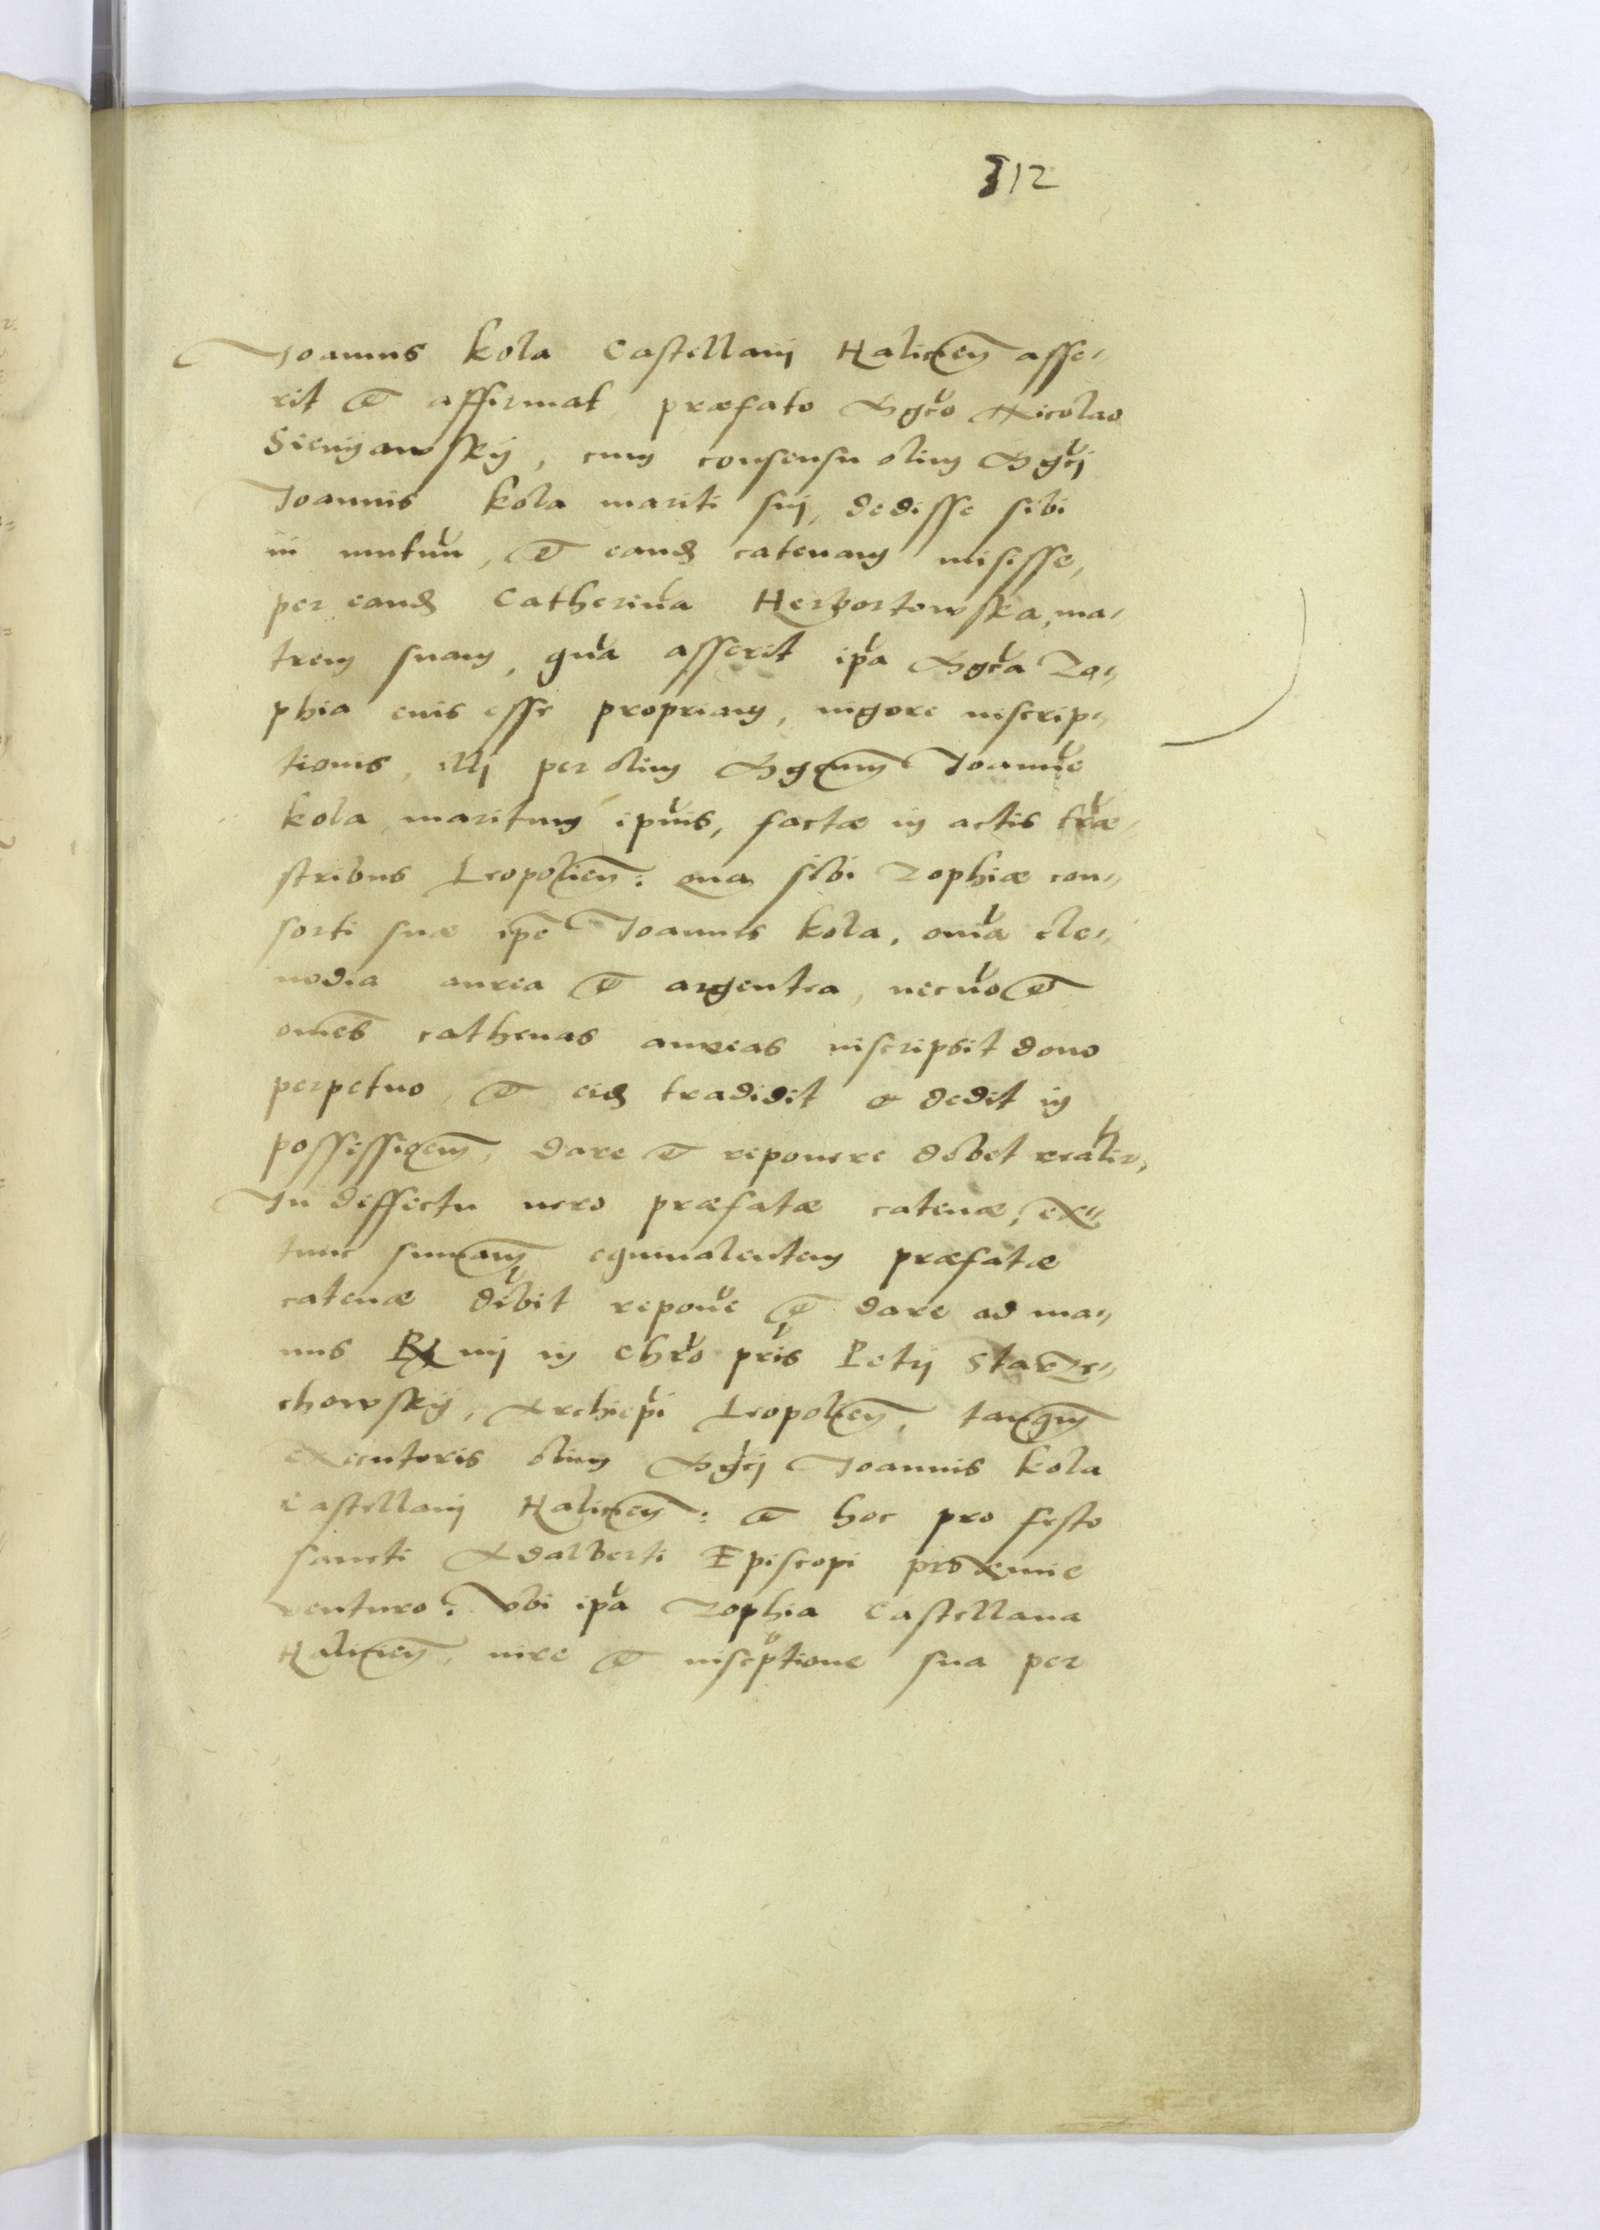 312
Joannis Kola Castellanj Halicień asse-
rit et affirmat, præfato Mgco Nicolao
Sienyawsky, cum consensu olim Mgcj
Joannis Kola mariti suj, dedisse sibi
in mutuū, et eand catenam misisse,
per eand Catherina Herbortowska, ma-
trem suam, qua asserit ipa Mgca Zo-
phia eius esse propriam, vigore inscrip-
tionis, illj per olim Mgcum Joanne
Kola maritum ipius, factæ in actis træ-
stribus Leopolien: qua sibi Zophiæ con-
sorti suæ ipe Joannes Kola, omia cle-
nodia aurea et argentea, necno et
omes cathenas aureas inscripsit dono
perpetuo, et eid tradidit & dedit in
possessioem, dare et reponere debet realr,
In deffectu vero præfatæ catenæ, ex-
tunc sumam equivalentem præfatæ
catenæ debit repone et dare ad ma-
nus Rmj in Chro pris Petrj Starze-
chowsky, Archiepi Leopolien, tanqm
executoris olim Mgcj Joannis Kola
Castellanj Halicien: et hoc pro festo
sancti Adalberti Episcopi proxime
venturo. Vbi ipa Zophia Castellana
Halicien, iure et inscptione sua per